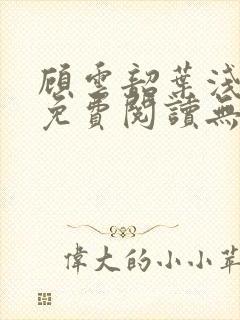 顧雲韶葉淺
免費閱讀無
偉大的小小草